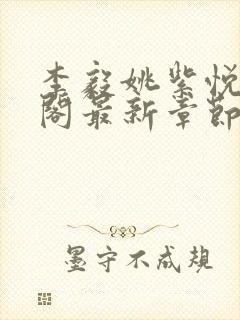 李毅姚紫悦
阁最新章节
墨守不成规